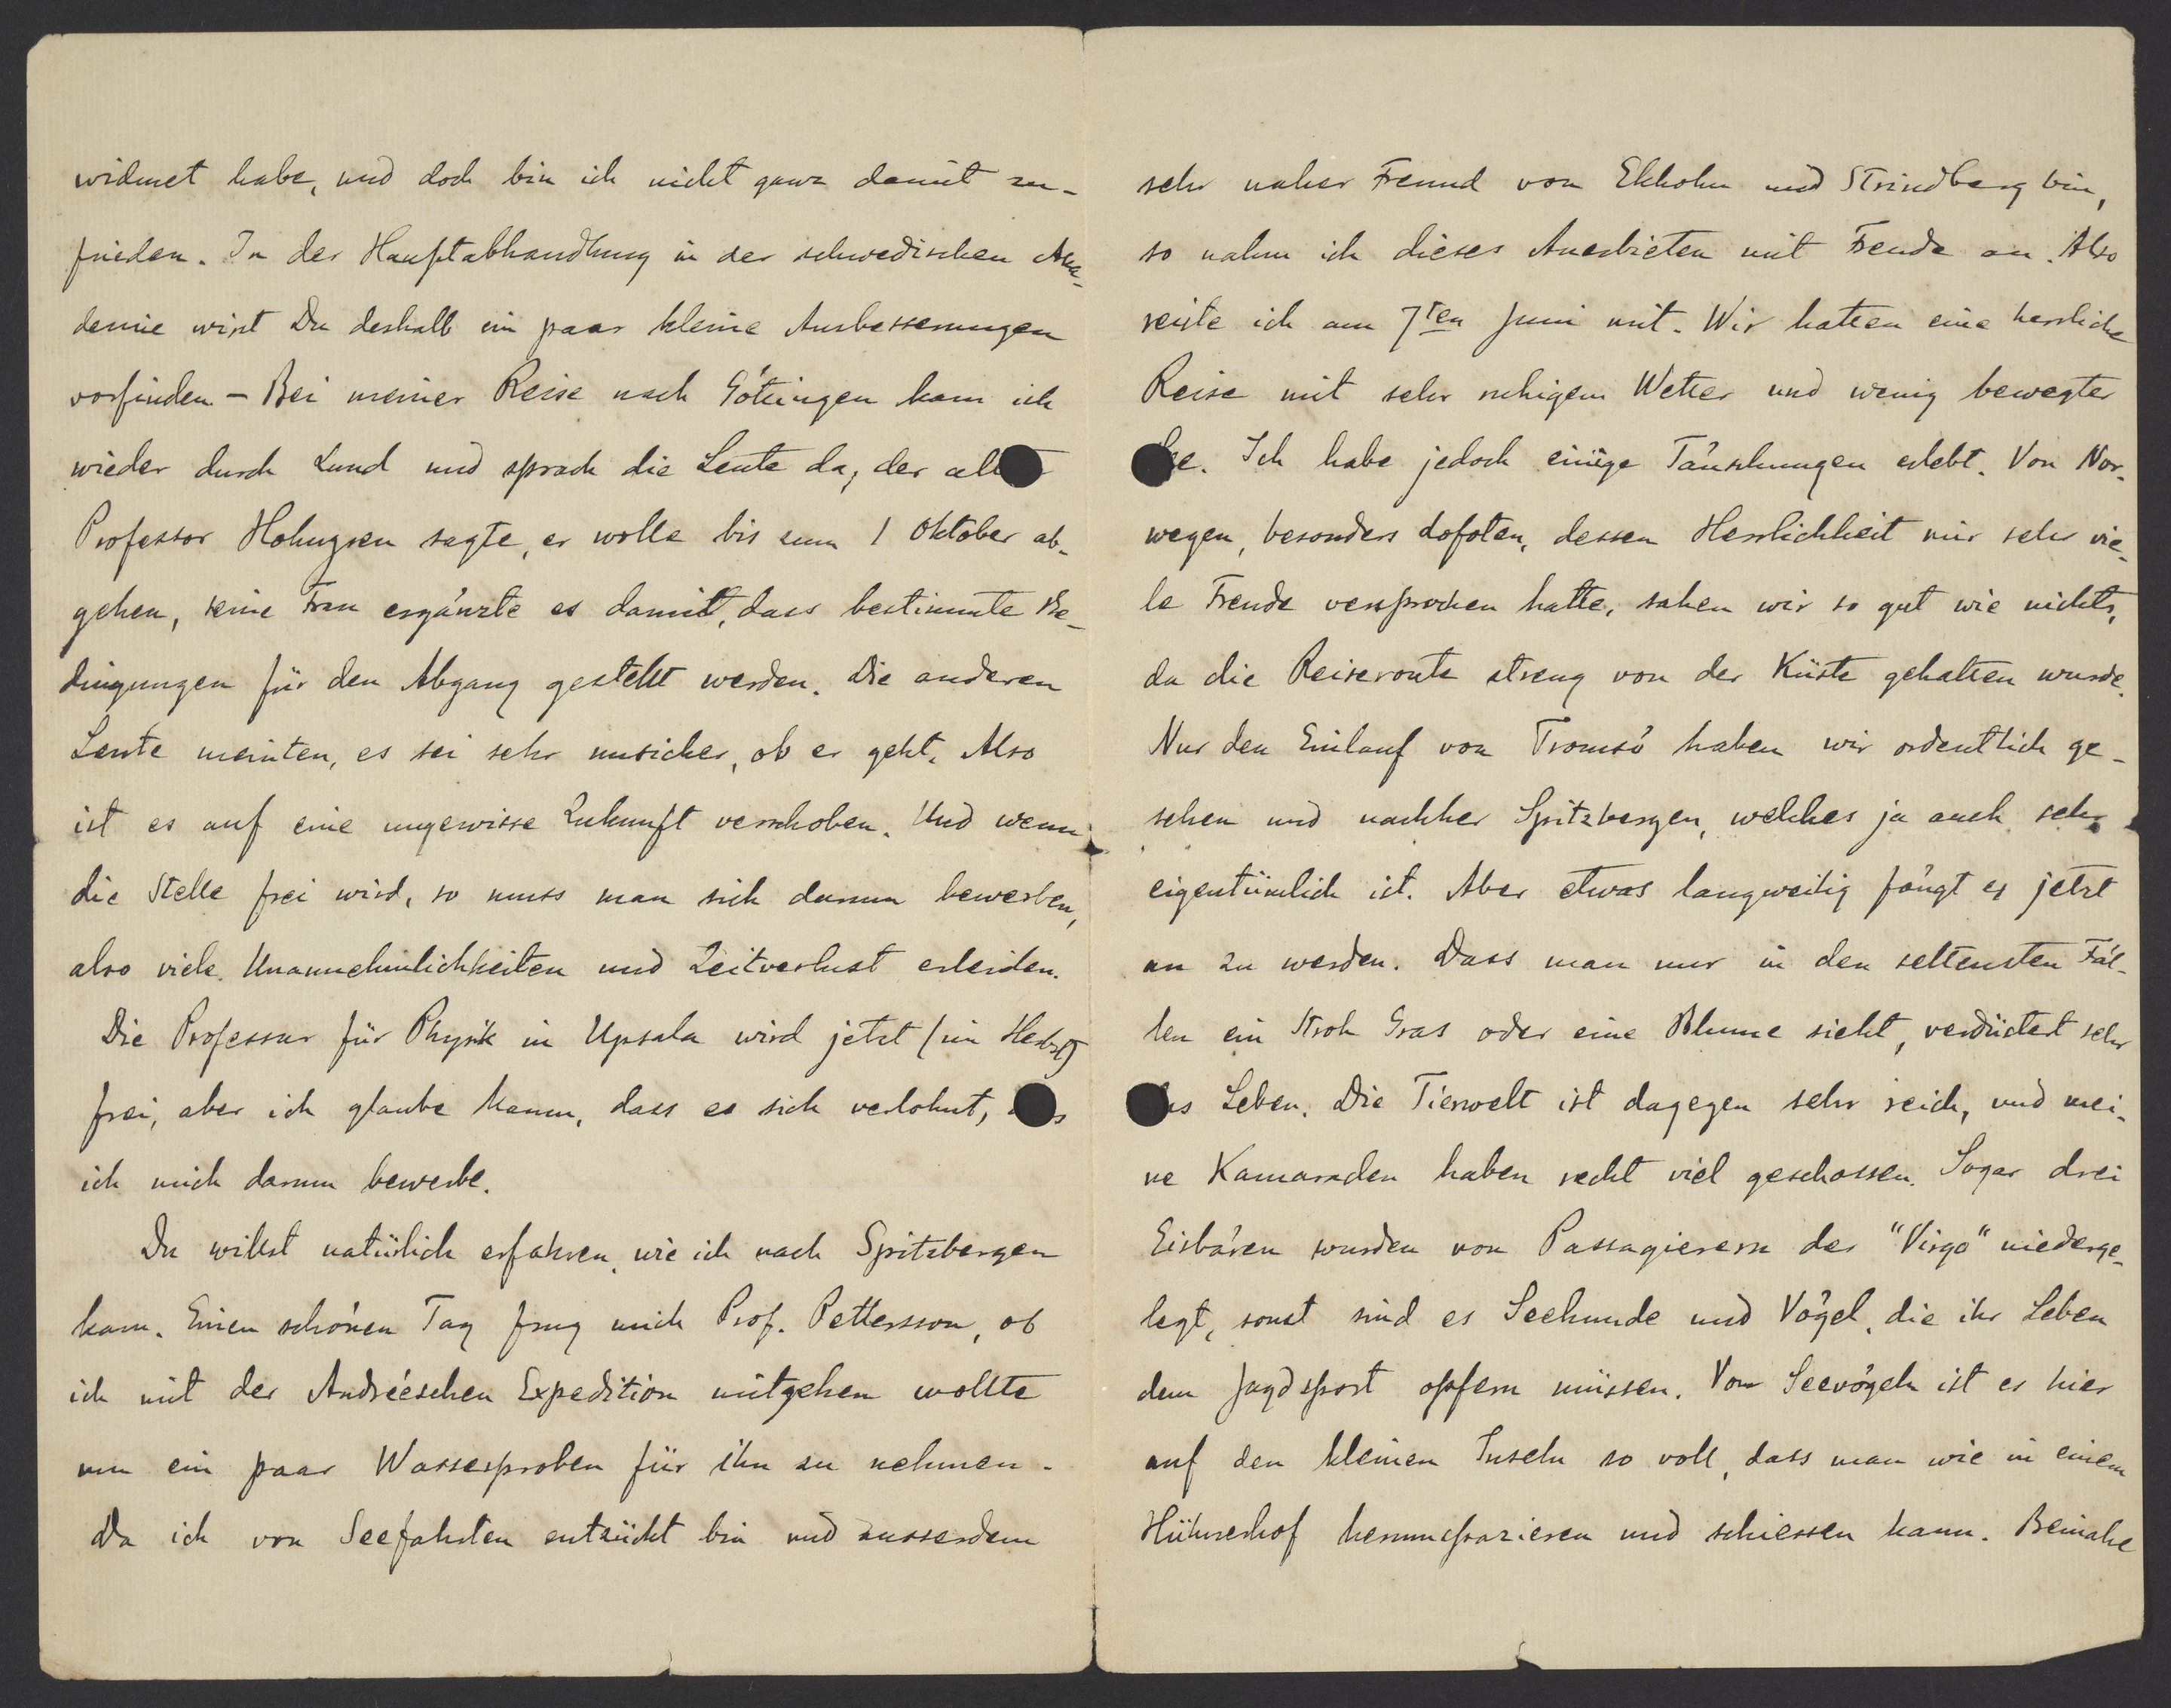 widmet habe, und doch bin ich nicht ganz damit zu-
frieden. In der Hauptabhandlung in der schwedischen Aka-
demie wirst Du deshalb ein paar kleine Ausbesserungen
vorfinden – Bei meiner Reise nach Götingen kam ich
wieder durch Lund und sprach die Leute da; der alte
Professor Holmgren sagte, er wolle bis zum 1 Oktober ab-
gehen, seine Frau ergänzte es damit, dass bestimmte Be-
dingungen für den Abgang gestellt werden. Die anderen
Leute meinten, es sei sehr unsicher, ob er geht. Also
ist es auf eine ungewisse Zukunft verschoben. Und wenn
die Stelle frei wird, so muss man sich darum bewerben,
also viele Unannehmlichkeiten und Zeitverlust erleiden.
Die Professur für Physik in Upsala wird jetzt (im Herbst)
frei, aber ich glaube kaum, dass es sich verlohnt, dass
ich mich darum bewerbe.
Du willst natürlich erfahren, wie ich nach Spitzbergen
kam. Einen schönen Tag frug mich Prof. Pettersson, ob
ich mit der Andréeschen Expedition mitgehen wollte
um ein paar Wasserproben für ihn zu nehmen.
Da ich von Seefahrten entzückt bin und ausserdem
sehr naher Freund von Ekholm und Strindberg bin,
so nahm ich dieses Anerbieten mit Freude an. Also
reiste ich am 7ten Juni mit. Wir hatten eine herrliche
Reise mit sehr ruhigem Wetter und wenig bewegter
See. Ich habe jedoch einige Täuschungen erlebt. Von Nor-
wegen, besonders Lofoten, dessen Herrlichkeit mir sehr vie-
le Freude versprochen hatte, sahen wir so gut wie nichts,
da die Reiseroute streng von der Küste gehalten wurde.
Nur den Einlauf von Tromsö haben wir ordentlich ge-
sehen und nachher Spitzbergen, welches ja auch sehr
eigentümlich ist. Aber etwas langweilig fängt es jetzt
an zu werden. Dass man nur in den seltensten Fäl-
len ein Stroh Gras oder eine Blume sieht, verdüstert sehr
das Leben. Die Tierwelt ist dagegen sehr reich, und mei-
ne Kamaraden haben recht viel geschossen. Sogar drei
Eisbären wurden von Passagierern der "Virgo" niederge-
legt, sonst sind es Seehunde und Vögel, die ihr Leben
dem Jagdsport opfern müssen. Von Seevögeln ist es hier
auf den kleinen Inseln so voll, dass man wie in einem
Hühnerhof herumspazieren und schiessen kann. Beinahe